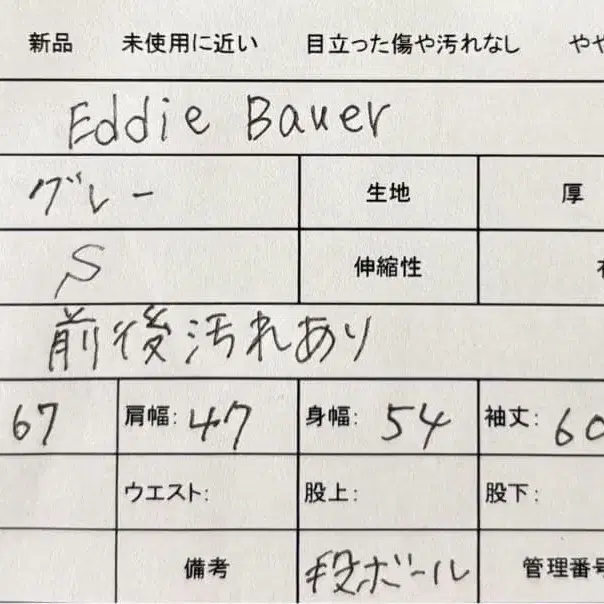 新品 未使用に近い 目立った傷や汚れなし やや
Eddie Bauer
グレー 生地 厚
S 伸縮性
前後汚れあり
67 肩幅: 47 身幅: 54 袖丈: 60
ウエスト: 股上: 股下:
備考 段ボール 管理番号